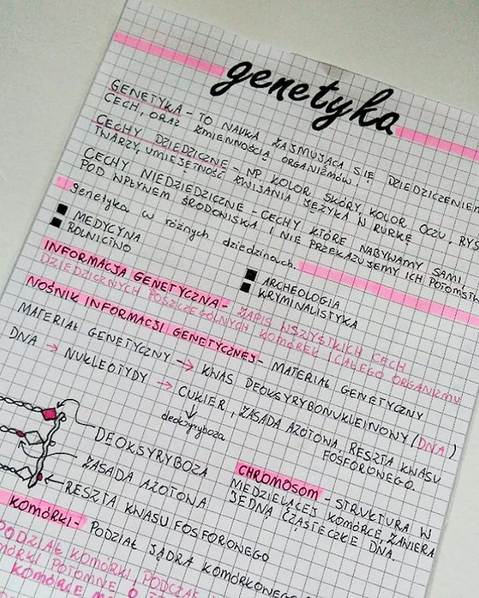 genetyka
GENETYKA - TO NAUKA ZAJMUJĄCA SIĘ DZIEDZICZENIEM
CECH, ORAZ ZMIENNOŚCIĄ ORGANIZMÓW!
CECHY DZIEDZICZNE - NP KOLOR SKÓRY, KOLOR OCZU, RYS
TWARZY, UMIEJĘTNOŚĆ ZWIJANIA JĘZYKA W RURKĘ
CECHY NIEDZIEDZICZNE - CECHY KTÓRE NABYWAMY SAMI,
POD WPŁYWEM ŚRODOWISKA I NIE PRZEKAZUJEMY ICH POTOMSTW
genetyka w różnych dziedzinach.
MEDYCYNA
ROLNICTWO
ARCHEOLOGIA
KRYMINALISTYKA
INFORMACJA GENETYCZNA - ZAPIS WSZYSTKICH CECH
DZIEDZICZNYCH POSZCZEGÓLNYCH KOMÓREK I CAŁEGO ORGANIZMU
NOŚNIK INFORMACJI GENETYCZNEJ - MATERIAŁ GENETYCZNY
MATERIAŁ GENETYCZNY → KWAS DEOKSYRYBONUKLEINOWY (DNA)
DNA → NUKLEOTYDY → CUKIER, ZASADA AZOTOWA, RESZTA KWASU
FOSFOROWEGO.
deoksyryboza
DEOKSYRYBOZA
ZASADA AZOTOWA
RESZTA KWASU FOSFOROWEGO
CHROMOSOM - STRUKTURA W
JEDNĄ CZĄSTECZKĘ DNA.
KOMÓRKI - PODZIAŁ JĄDRA KOMÓRKOWEGO
PODZIAŁ KOMÓRKI, PODCZAS
POTOMNE O